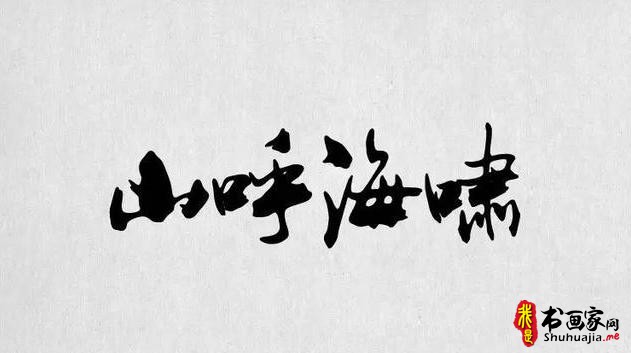 山呼海啸
我是 书画家网
Shuhuajia.me